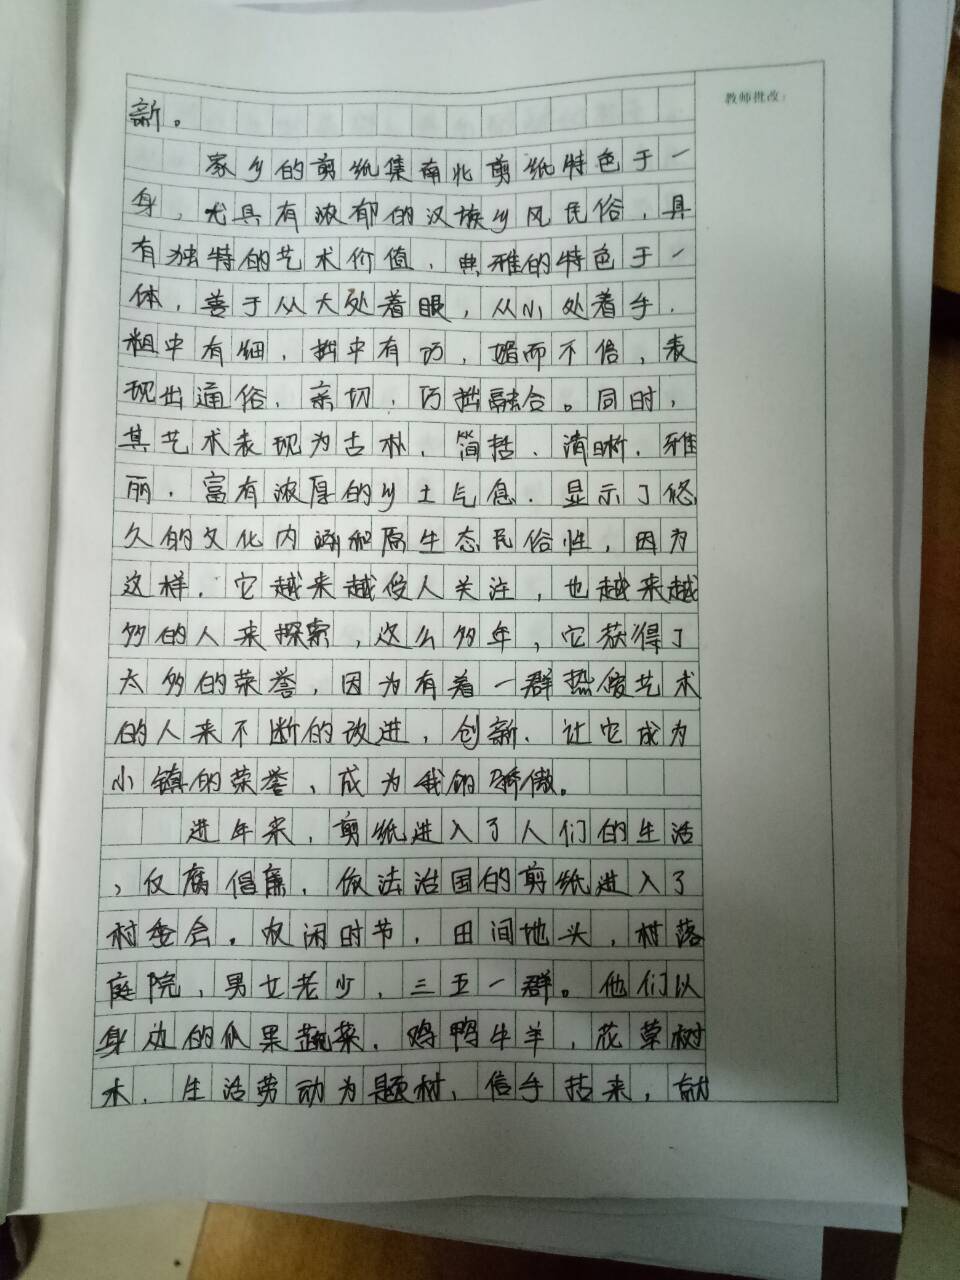 教师批改：
新。
家乡的剪纸集南北剪纸特色于一
身，尤具有浓郁的汉族乡风民俗，具
有独特的艺术价值，典雅的特色于一
体，善于从大处着眼，从小处着手，
粗中有细，拙中有巧，媚而不俗，表
现出通俗、亲切，巧拙融合。同时，
其艺术表现为古朴、简括、清晰、雅
丽，富有浓厚的乡土气息，显示了悠
久的文化内涵和原生态民俗性，因为
这样，它越来越受人关注，也越来越
多的人来探索，这么多年，它获得了
太多的荣誉，因为有着一群热爱艺术
的人来不断的改进，创新，让它成为
小镇的荣誉，成为我的骄傲。
进年来，剪纸进入了人们的生活
，反腐倡廉，依法治国的剪纸进入了
村委会。农闲时节，田间地头，村落
庭院，男女老少，三五一群。他们以
身边的瓜果蔬菜，鸡鸭牛羊，花草树
木，生活劳动为题材，信手拈来，就